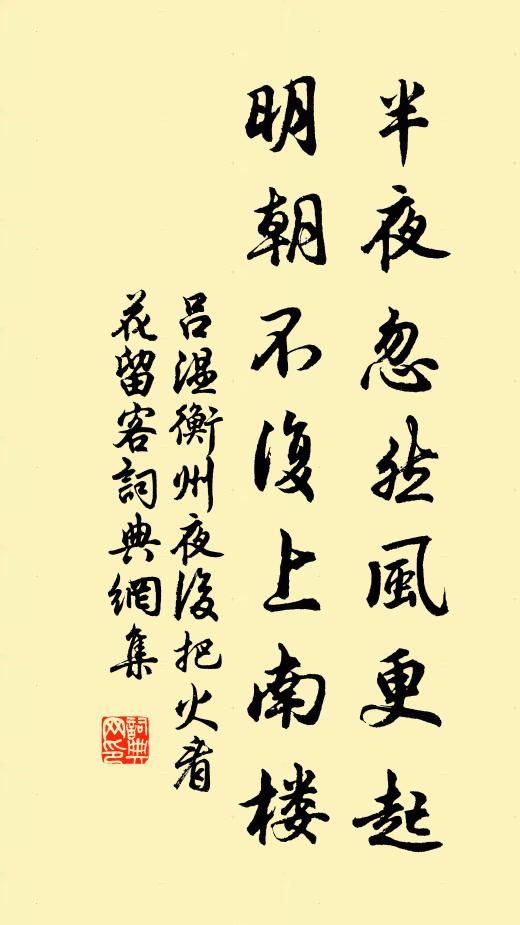 半夜忽然風更起
明朝不復上南楼
呂温衡州夜後把火看
花留客詞典網集
詞典網印